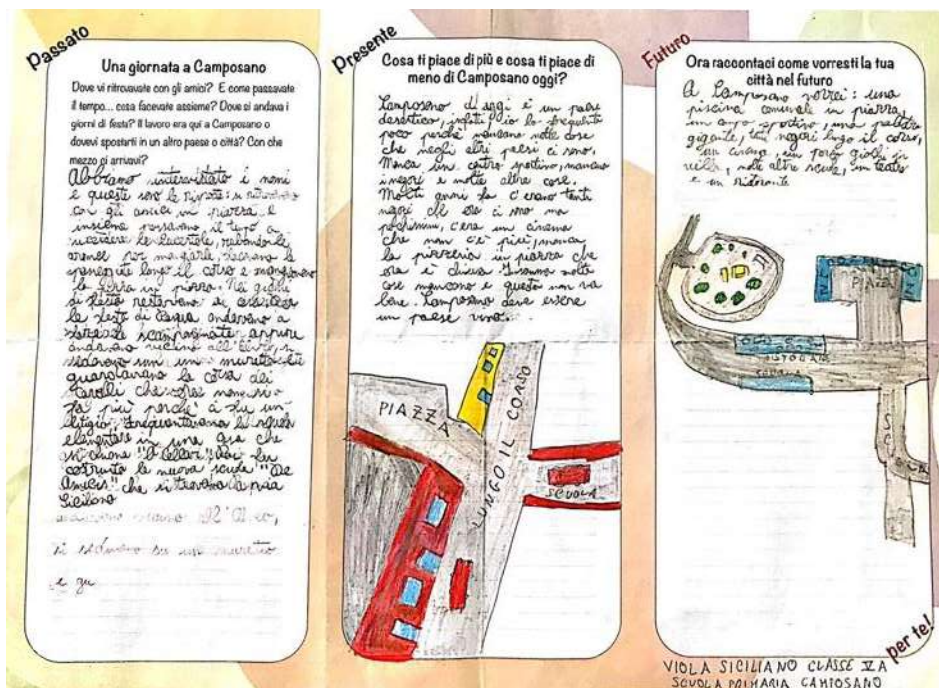 Passato
Una giornata a Camposano
Dove vi ritrovavate con gli amici? E come passavate
il tempo... cosa facevate assieme? Dove si andava i
giorni di festa? Il lavoro era qui a Camposano o
dovevi spostarti in un altro paese o città? Con che
mezzo ci arrivavi?
Abbiamo intervistato i nonni
e queste sono le risposte: si
con gli amici in piazza e
insieme passavano il tempo a
le lucertole,
per mangiarle, facevano le
lungo il corso e mangiavano
la in piazza. Nei giorni
di festa restavano a
le feste di Pasqua andavano a
fare le scampagnate oppure
andavano vicino all'
sedevano su un muretto e
guardavano la corsa dei
cavalli che ora non si
fa più perché ci fu un
litigio. Frequentavano la scuola
elementare in una che
si chiama poi fu
costruita la nuova scuola "De
Amicis" che si trovava
Siciliano
vicino all'
si sedevano su un muretto
e gu
Presente
Cosa ti piace di più e cosa ti piace di
meno di Camposano oggi?
Camposano di oggi è un paese
desertico, infatti io lo frequento
poco perché mancano molte cose
che negli altri paesi ci sono.
Manca un centro sportivo, mancano
i negozi e molte altre cose.
Molti anni fa c'erano tanti
negozi che ora ci sono ma
pochissimi, c'era un cinema
che non c'è più, manca
la pizzeria in piazza che
ora è chiusa. Insomma molte
cose mancano e questo non va
bene. Camposano deve essere
un paese vivo.
PIAZZA
LUNGO IL CORSO
SCUOLA
Futuro
Ora raccontaci come vorresti la tua
città nel futuro
A Camposano vorrei: una
piscina comunale in piazza,
un campo sportivo, una
gigante, tanti negozi lungo il corso,
un cinema, un parco giochi in
villa, molte altre scuole, un teatro
e un ristorante
PIAZZA
SCUOLA
per te!
VIOLA SICILIANO CLASSE VA
SCUOLA PRIMARIA CAMPOSANO